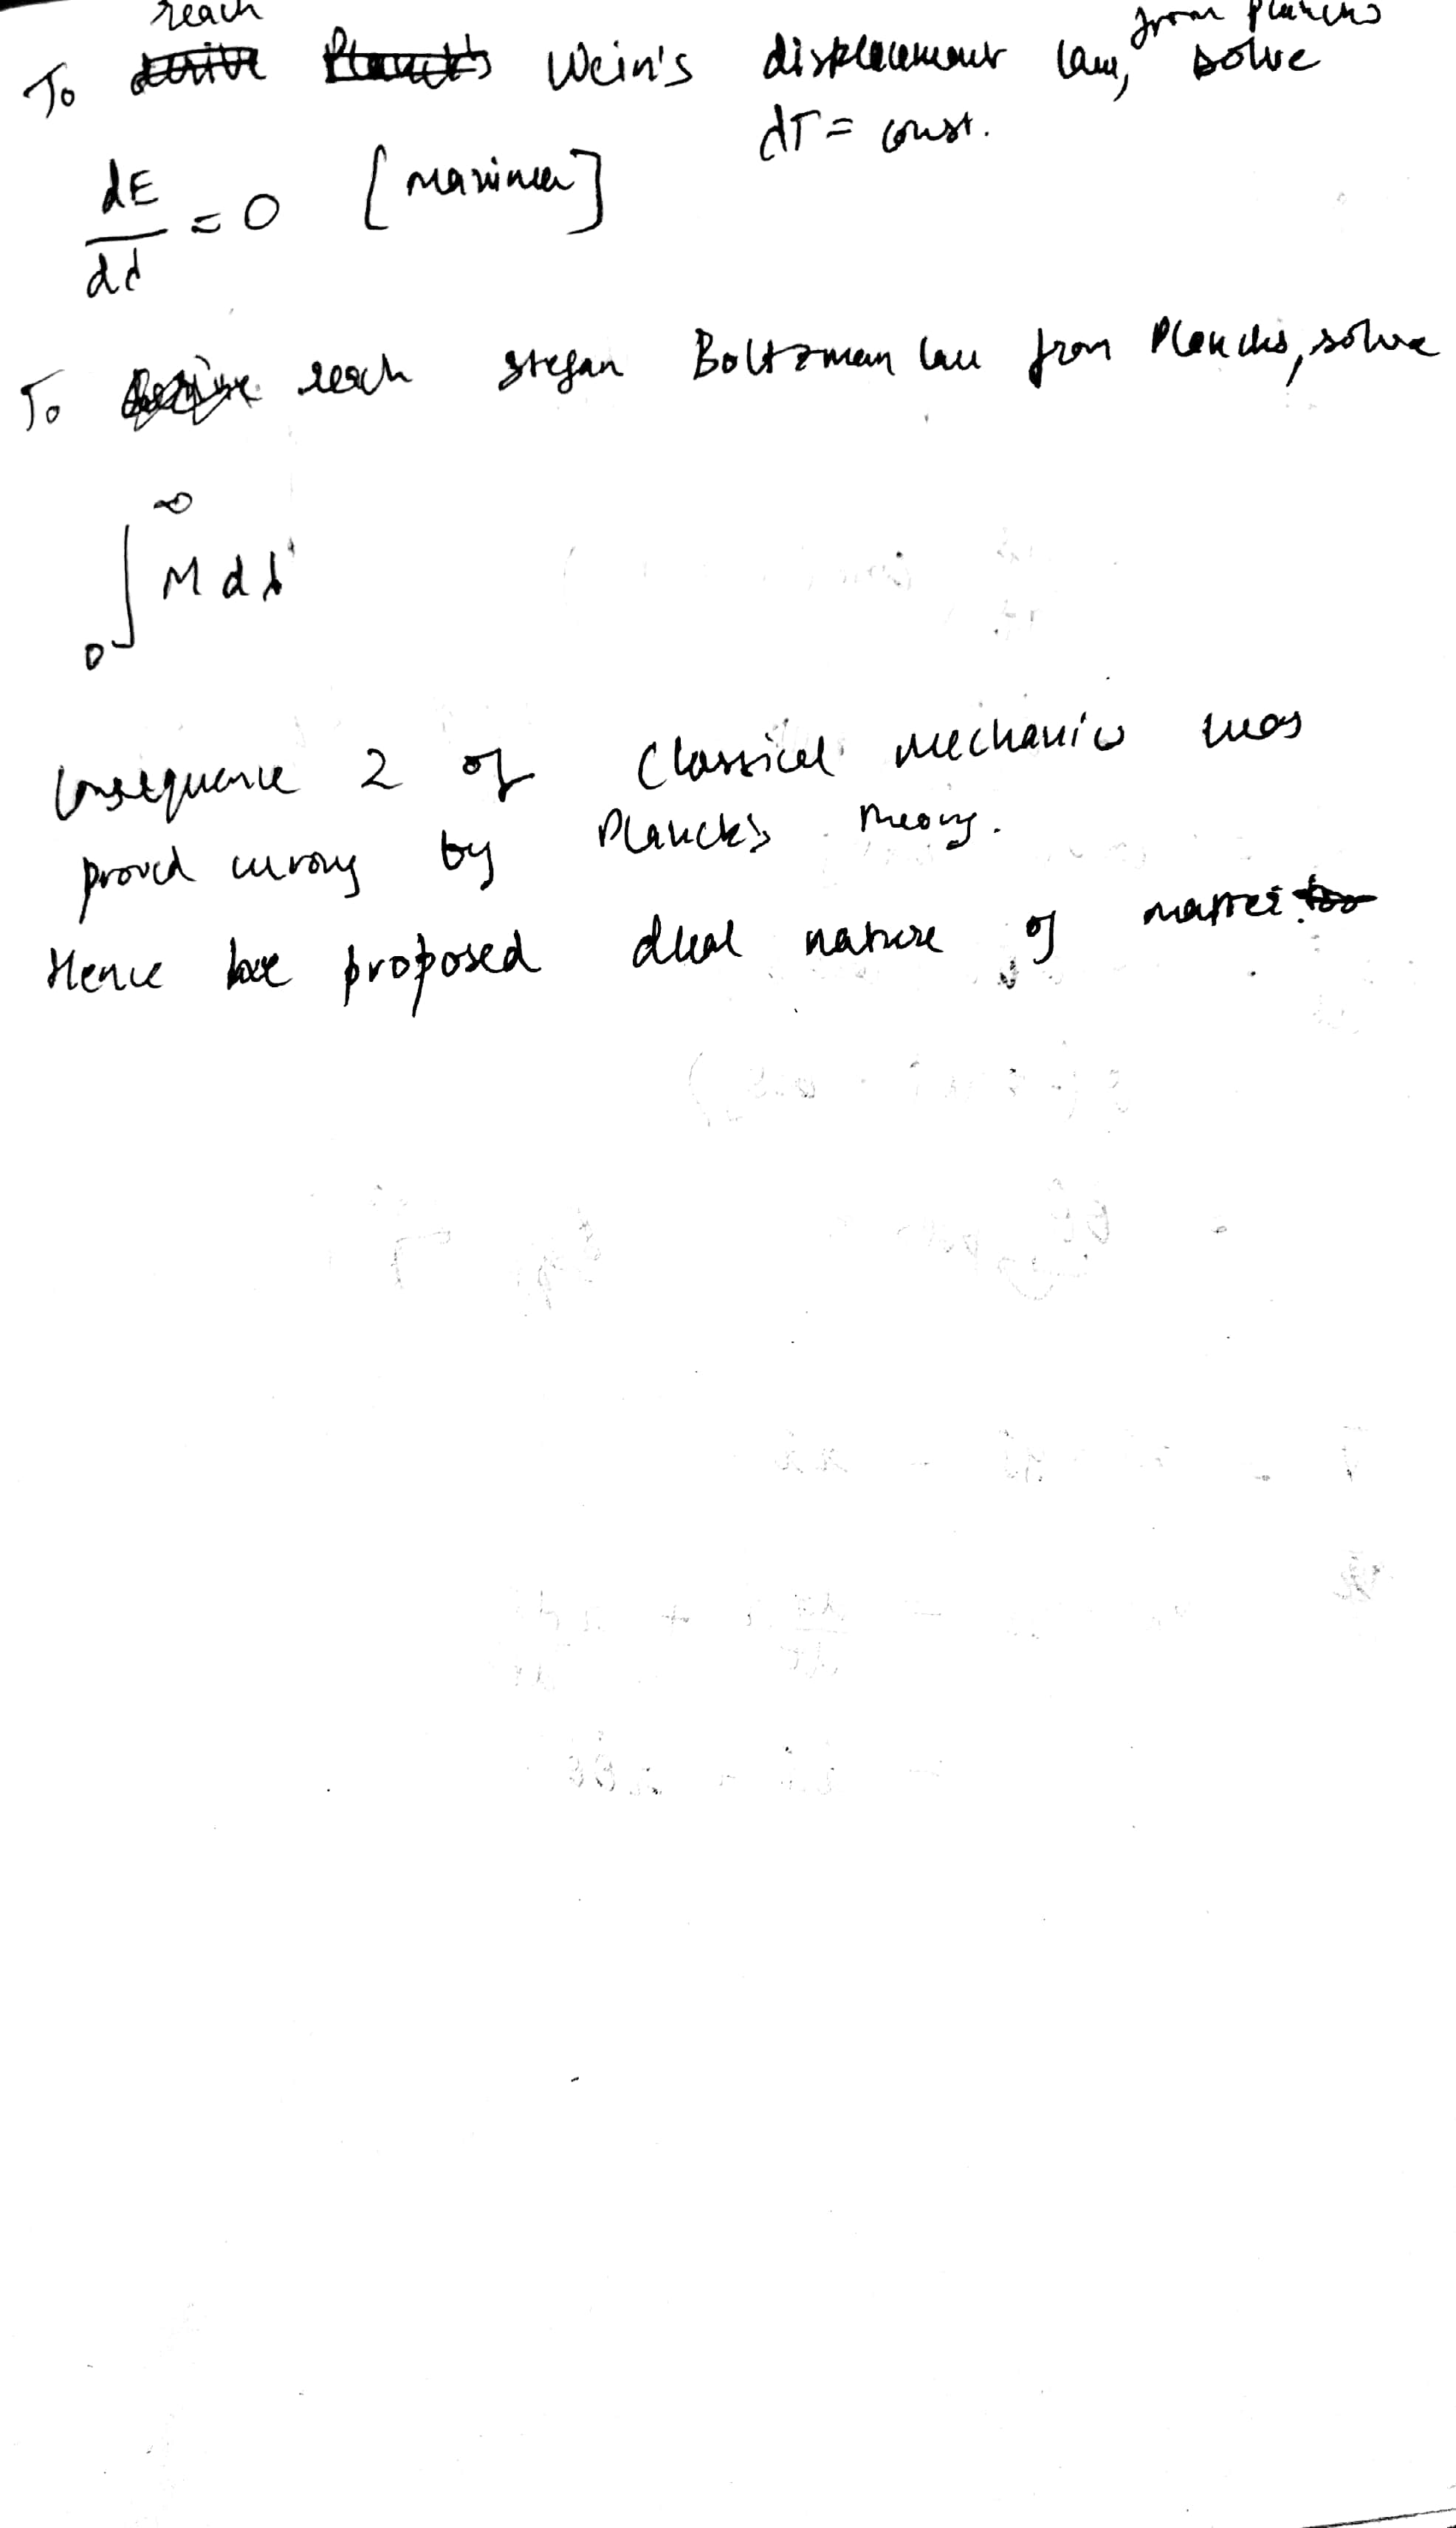 reach from Plancks
To Wein's displacement law, solve
dT = const.
dE/dd = 0 [maxima]
To reach Stefan Boltzman law from Plancks, solve
∞
∫ M dλ
0
Consequence 2 of Classical mechanics was
proved wrong by Planck's theory.
Hence he proposed dual nature of matter.